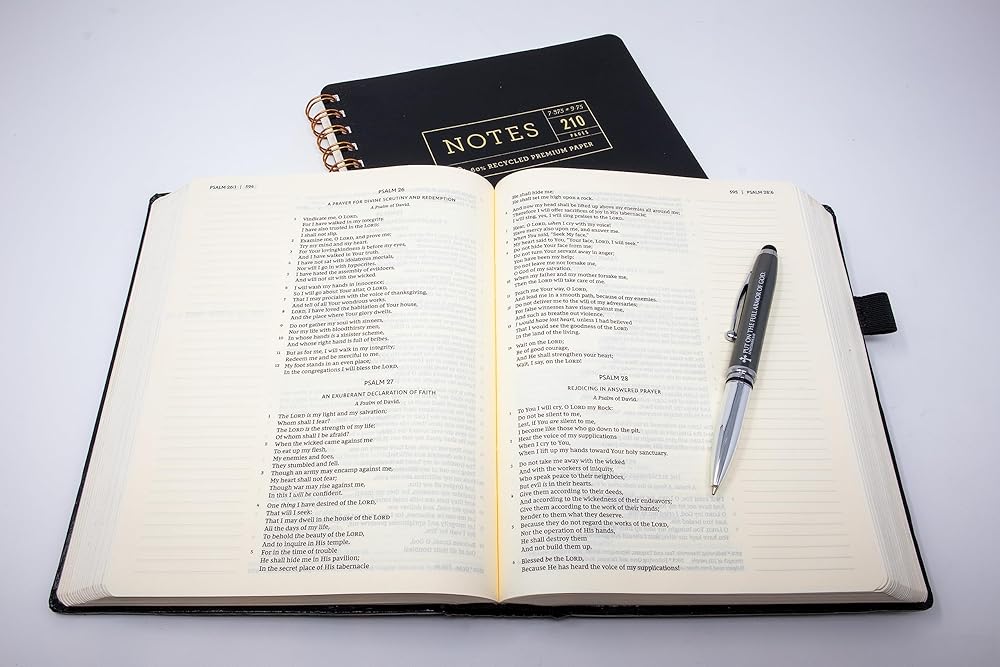 NOTES
7.375 × 9.75
210
PAGES
RECYCLED PREMIUM PAPER
PSALM 26:1 | 594
PSALM 26
A PRAYER FOR DIVINE SCRUTINY AND REDEMPTION
A Psalm of David.
1 Vindicate me, O LORD,
For I have walked in my integrity.
I have also trusted in the LORD;
I shall not slip.
2 Examine me, O LORD, and prove me;
Try my mind and my heart.
3 For Your lovingkindness is before my eyes,
And I have walked in Your truth.
4 I have not sat with idolatrous mortals,
Nor will I go in with hypocrites.
5 I have hated the assembly of evildoers,
And will not sit with the wicked.
6 I will wash my hands in innocence;
So I will go about Your altar, O LORD,
7 That I may proclaim with the voice of thanksgiving,
And tell of all Your wondrous works.
8 LORD, I have loved the habitation of Your house,
And the place where Your glory dwells.
9 Do not gather my soul with sinners,
Nor my life with bloodthirsty men,
10 In whose hands is a sinister scheme,
And whose right hand is full of bribes.
11 But as for me, I will walk in my integrity;
Redeem me and be merciful to me.
12 My foot stands in an even place;
In the congregations I will bless the LORD.
PSALM 27
AN EXUBERANT DECLARATION OF FAITH
A Psalm of David.
1 The LORD is my light and my salvation;
Whom shall I fear?
The LORD is the strength of my life;
Of whom shall I be afraid?
2 When the wicked came against me
To eat up my flesh,
My enemies and foes,
They stumbled and fell.
3 Though an army may encamp against me,
My heart shall not fear;
Though war may rise against me,
In this I will be confident.
4 One thing I have desired of the LORD,
That will I seek:
That I may dwell in the house of the LORD
All the days of my life,
To behold the beauty of the LORD,
And to inquire in His temple.
5 For in the time of trouble
He shall hide me in His pavilion;
In the secret place of His tabernacle
595 | PSALM 28:6
He shall hide me;
He shall set me high upon a rock.
6 And now my head shall be lifted up above my enemies all around me;
Therefore I will offer sacrifices of joy in His tabernacle;
I will sing, yes, I will sing praises to the LORD.
7 Hear, O LORD, when I cry with my voice!
Have mercy also upon me, and answer me.
8 When You said, "Seek My face,"
My heart said to You, "Your face, LORD, I will seek."
9 Do not hide Your face from me;
Do not turn Your servant away in anger;
You have been my help;
Do not leave me nor forsake me,
O God of my salvation.
10 When my father and my mother forsake me,
Then the LORD will take care of me.
11 Teach me Your way, O LORD,
And lead me in a smooth path, because of my enemies.
12 Do not deliver me to the will of my adversaries;
For false witnesses have risen against me,
And such as breathe out violence.
13 I would have lost heart, unless I had believed
That I would see the goodness of the LORD
In the land of the living.
14 Wait on the LORD;
Be of good courage,
And He shall strengthen your heart;
Wait, I say, on the LORD!
PSALM 28
REJOICING IN ANSWERED PRAYER
A Psalm of David.
1 To You I will cry, O LORD my Rock:
Do not be silent to me,
Lest, if You are silent to me,
I become like those who go down to the pit.
2 Hear the voice of my supplications
When I cry to You,
When I lift up my hands toward Your holy sanctuary.
3 Do not take me away with the wicked
And with the workers of iniquity,
Who speak peace to their neighbors,
But evil is in their hearts.
4 Give them according to their deeds,
And according to the wickedness of their endeavors;
Give them according to the work of their hands;
Render to them what they deserve.
5 Because they do not regard the works of the LORD,
Nor the operation of His hands,
He shall destroy them
And not build them up.
6 Blessed be the LORD,
Because He has heard the voice of my supplications!
PUT ON THE FULL ARMOR OF GOD